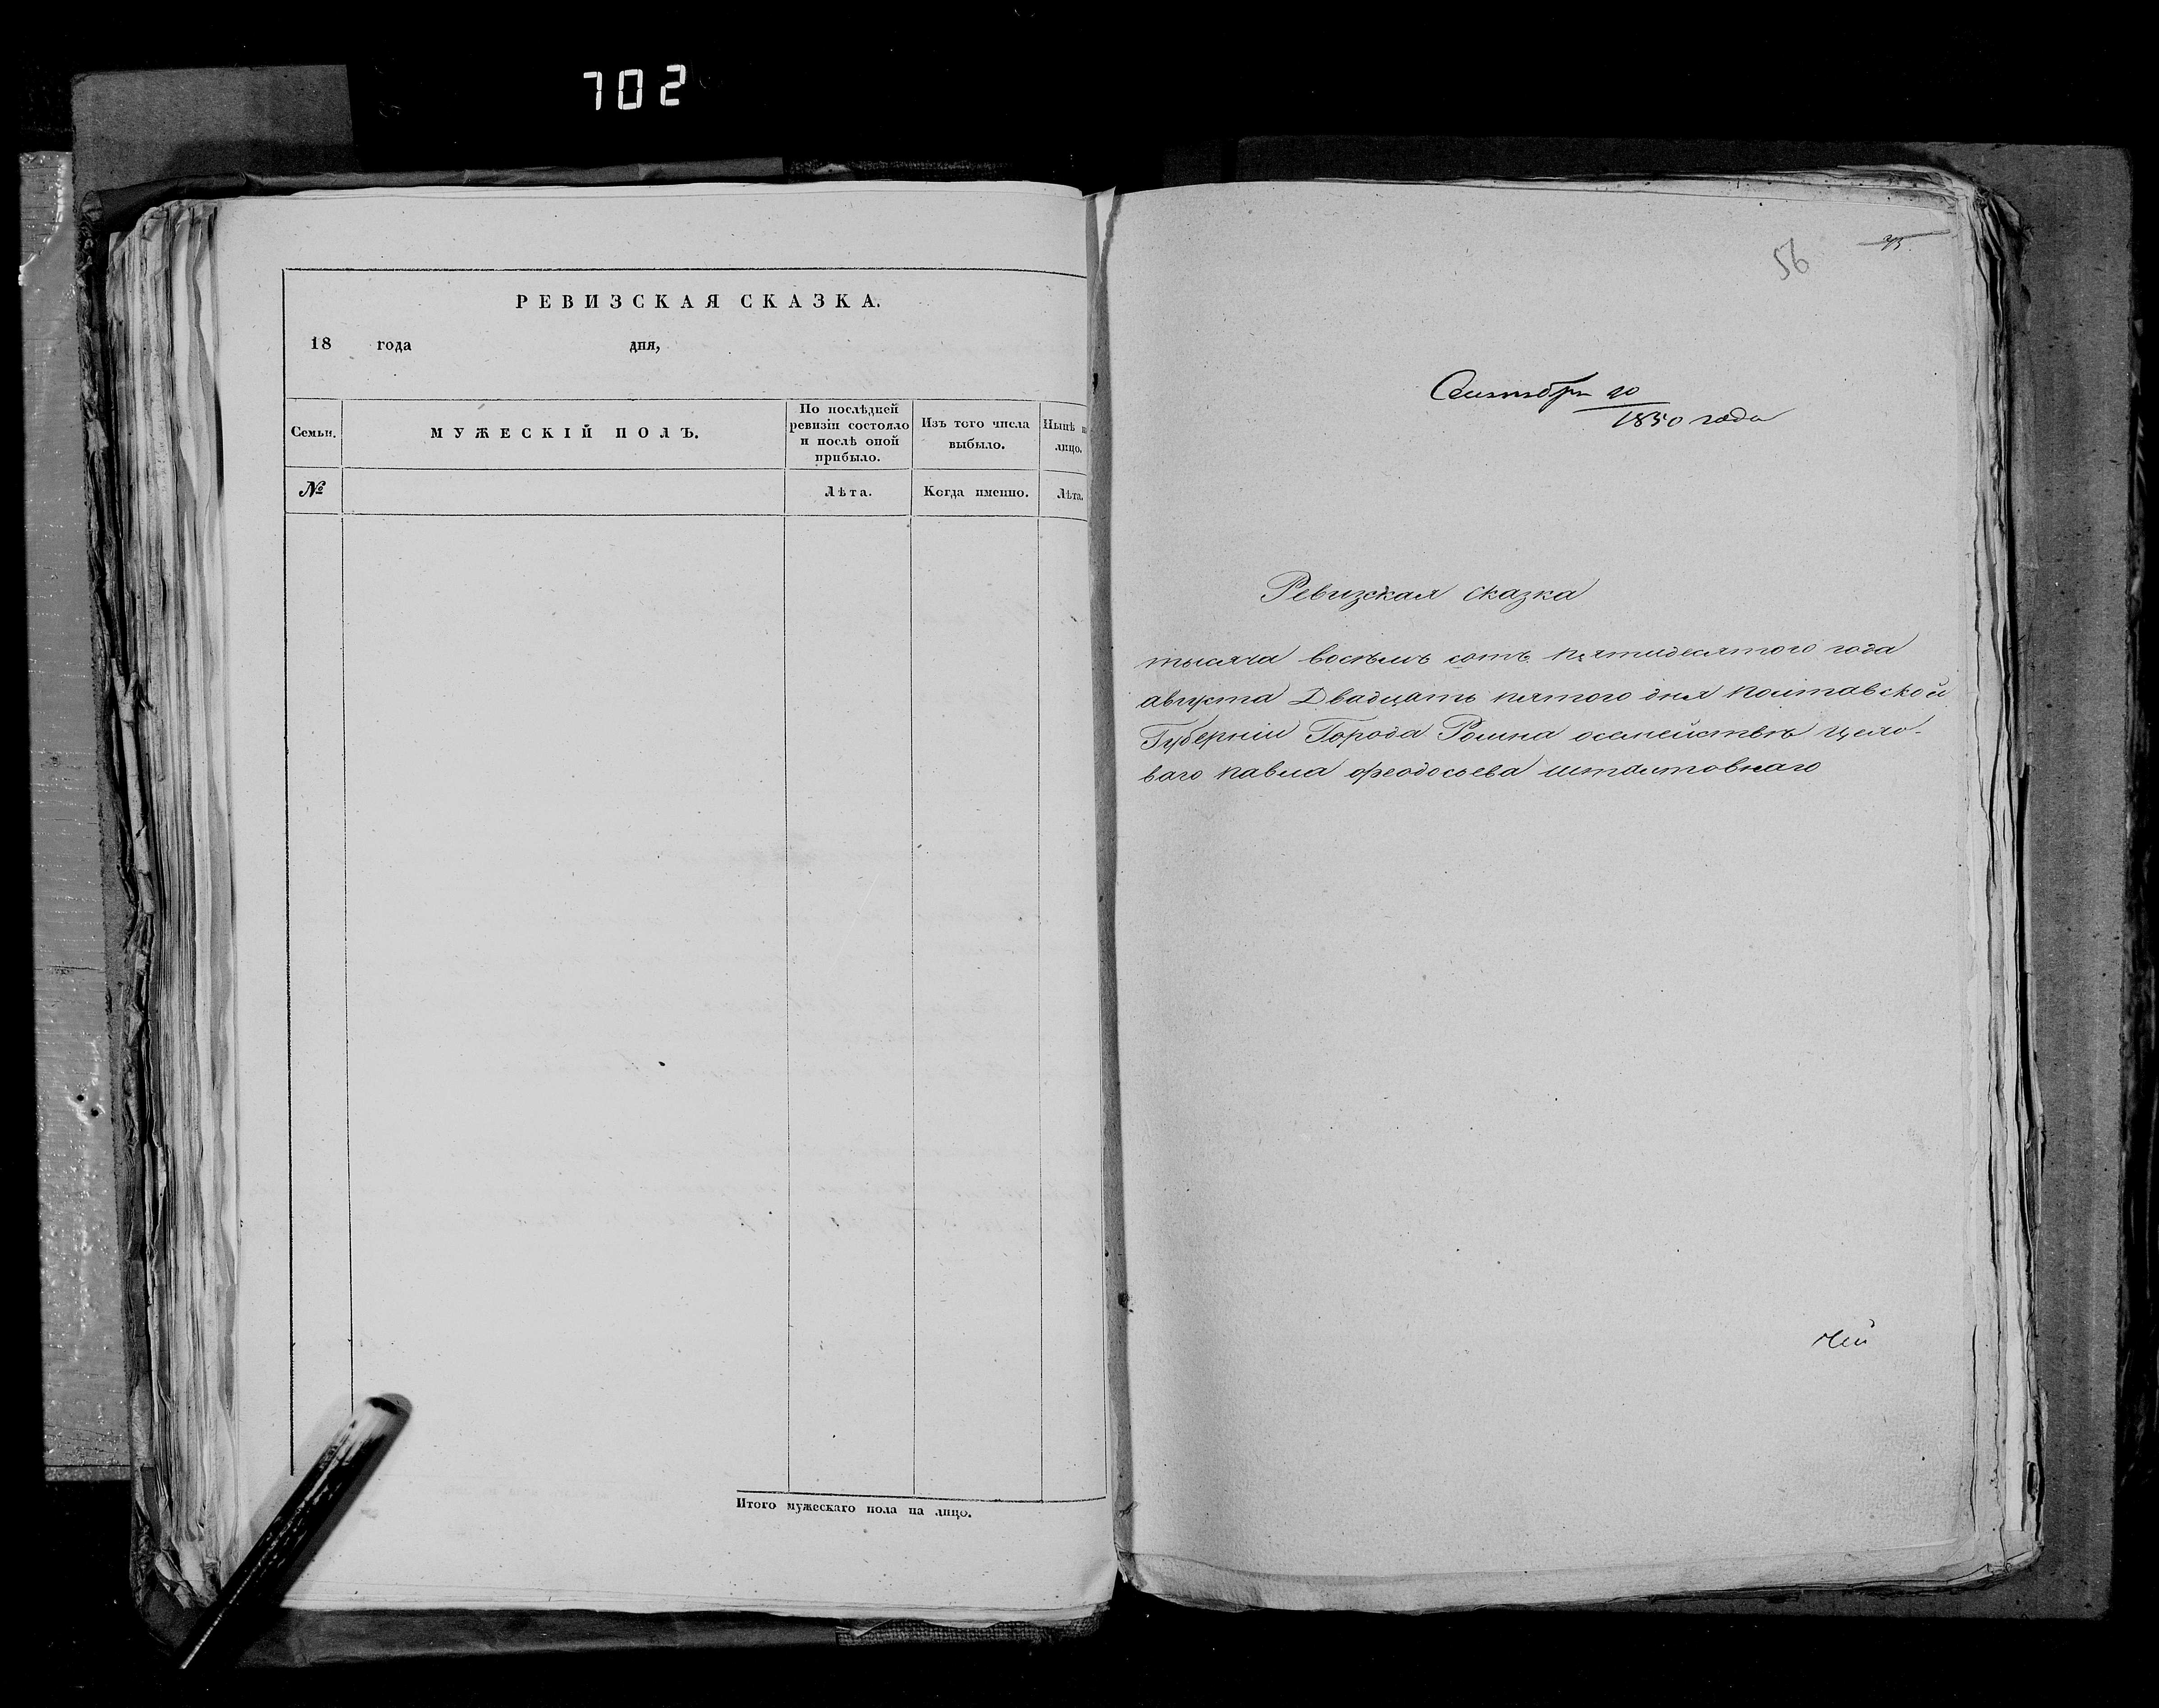 702
РЕВИЗСКАЯ СКАЗКА.
18 года дня,
Семьи.
МУЖЕСКІЙ ПОЛЪ.
По послѣдней
ревизіи состояло
и послѣ оной
прибыло.
Изъ того числа
выбыло.
Нынѣ н
лицо.
№
Лѣта.
Когда именно.
Лѣта.
Итого мужескаго пола на лицо.
56
Сентября 10
1850 года
Ревизская сказка
тысяча восѣмь сотъ пятидесятого года
августа Двадцать пятого дня полтавской
Губерніи Города Ромна осемействѣ цехо-
ваго павла феодосьева